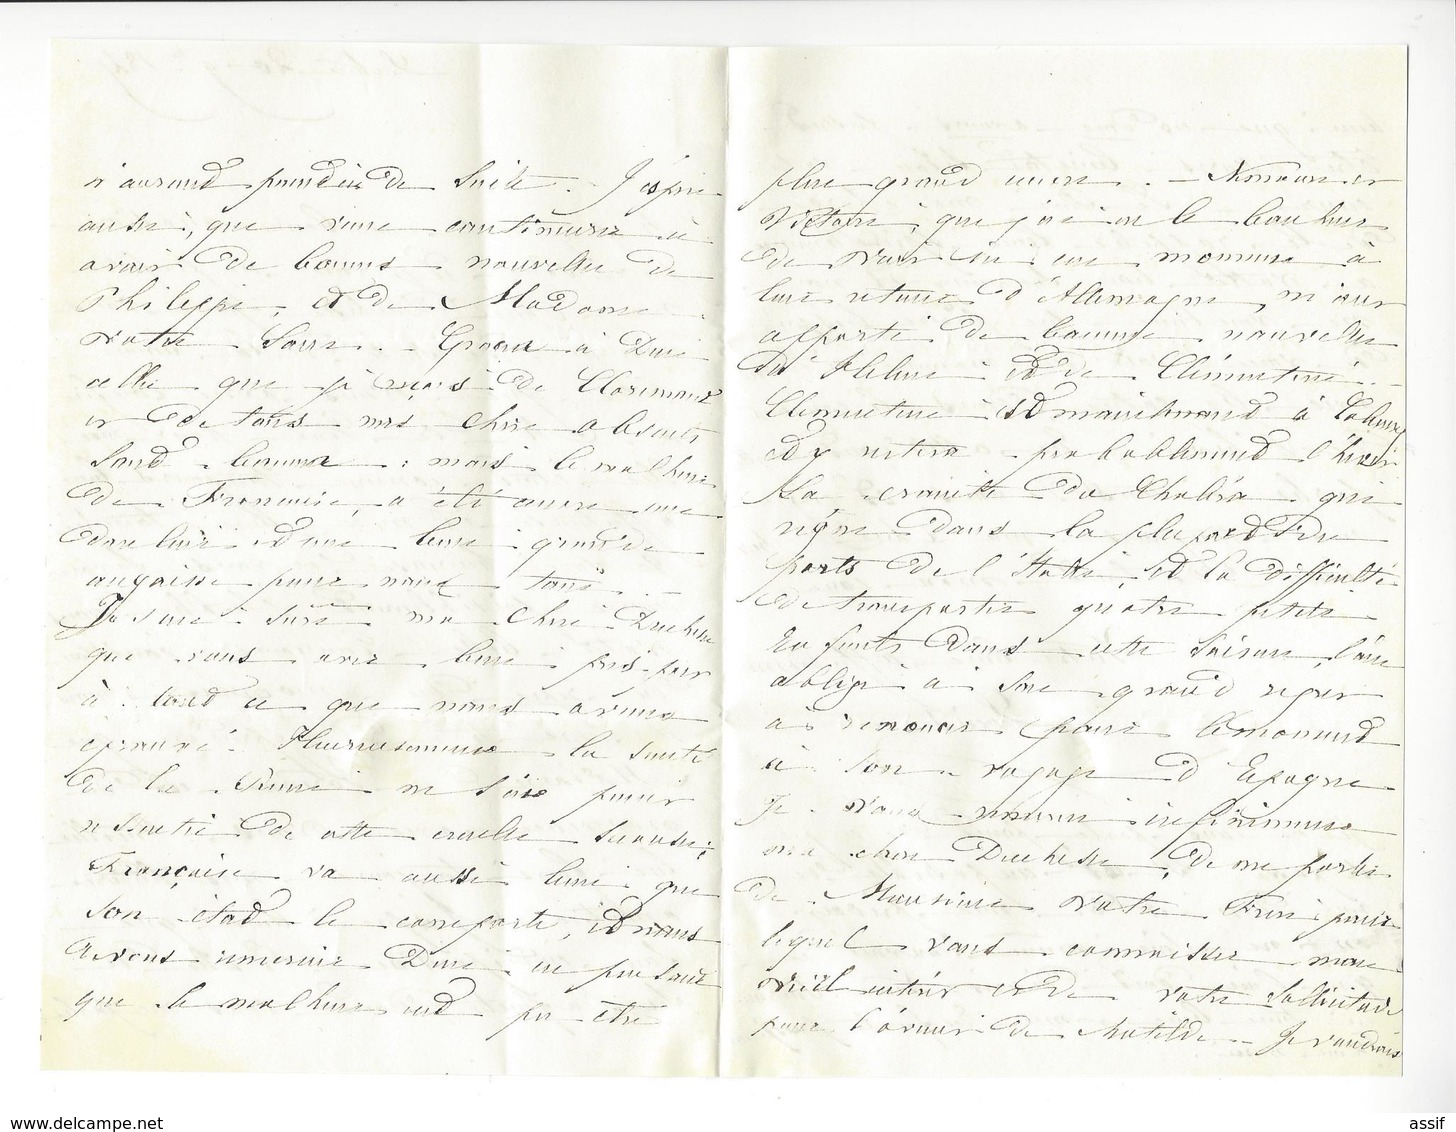 n'auront perdu de suite. J'espère
aussi, que vous continuerez à
avoir de bonnes nouvelles de
Philippe, et de Madame
votre Sœur. Grâce à Dieu
celles que je reçois de Claremont
et de tous mes chers absents
sont bonnes : mais le malheur
de Françoise, a été une
douleur et une bien grande
angoisse pour nous tous.
Je suis sûre ma chère Duchesse
que vous avez bien pris part
à tout ce que nous avons
éprouvé. Heureusement la santé
de la Reine ne s'est point
ressentie de cette cruelle secousse ;
Françoise va aussi bien que
son état le comporte, et nous
devons remercier Dieu en pensant
que le malheur eut pu être
plus grand encore. Nemours et
Victoire, que j'ai eu le bonheur
de voir ici un moment à
leur retour d'Allemagne, m'ont
apporté de bonnes nouvelles
d'Hélène et de Clémentine.
Clémentine est maintenant à Cobourg
et y restera probablement l'hiver
La crainte du Choléra qui
règne dans la plupart des
ports de l'Italie, et la difficulté
de transporter quatre petits
Enfants dans cette saison, l'ont
obligé à son grand regret
à renoncer pour le moment
à son voyage d'Espagne
Je vous remercie infiniment
ma chère Duchesse, de me parler
de Monsieur votre Frère pour
lequel vous connaissez mon
réel intérêt et de votre sollicitude
pour l'avenir de Matilde. Je voudrais
delcampe.net
assif